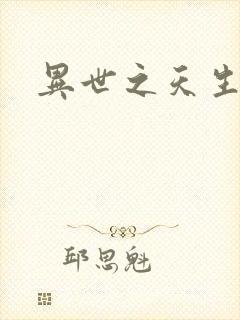 異世之天生
邱思魁